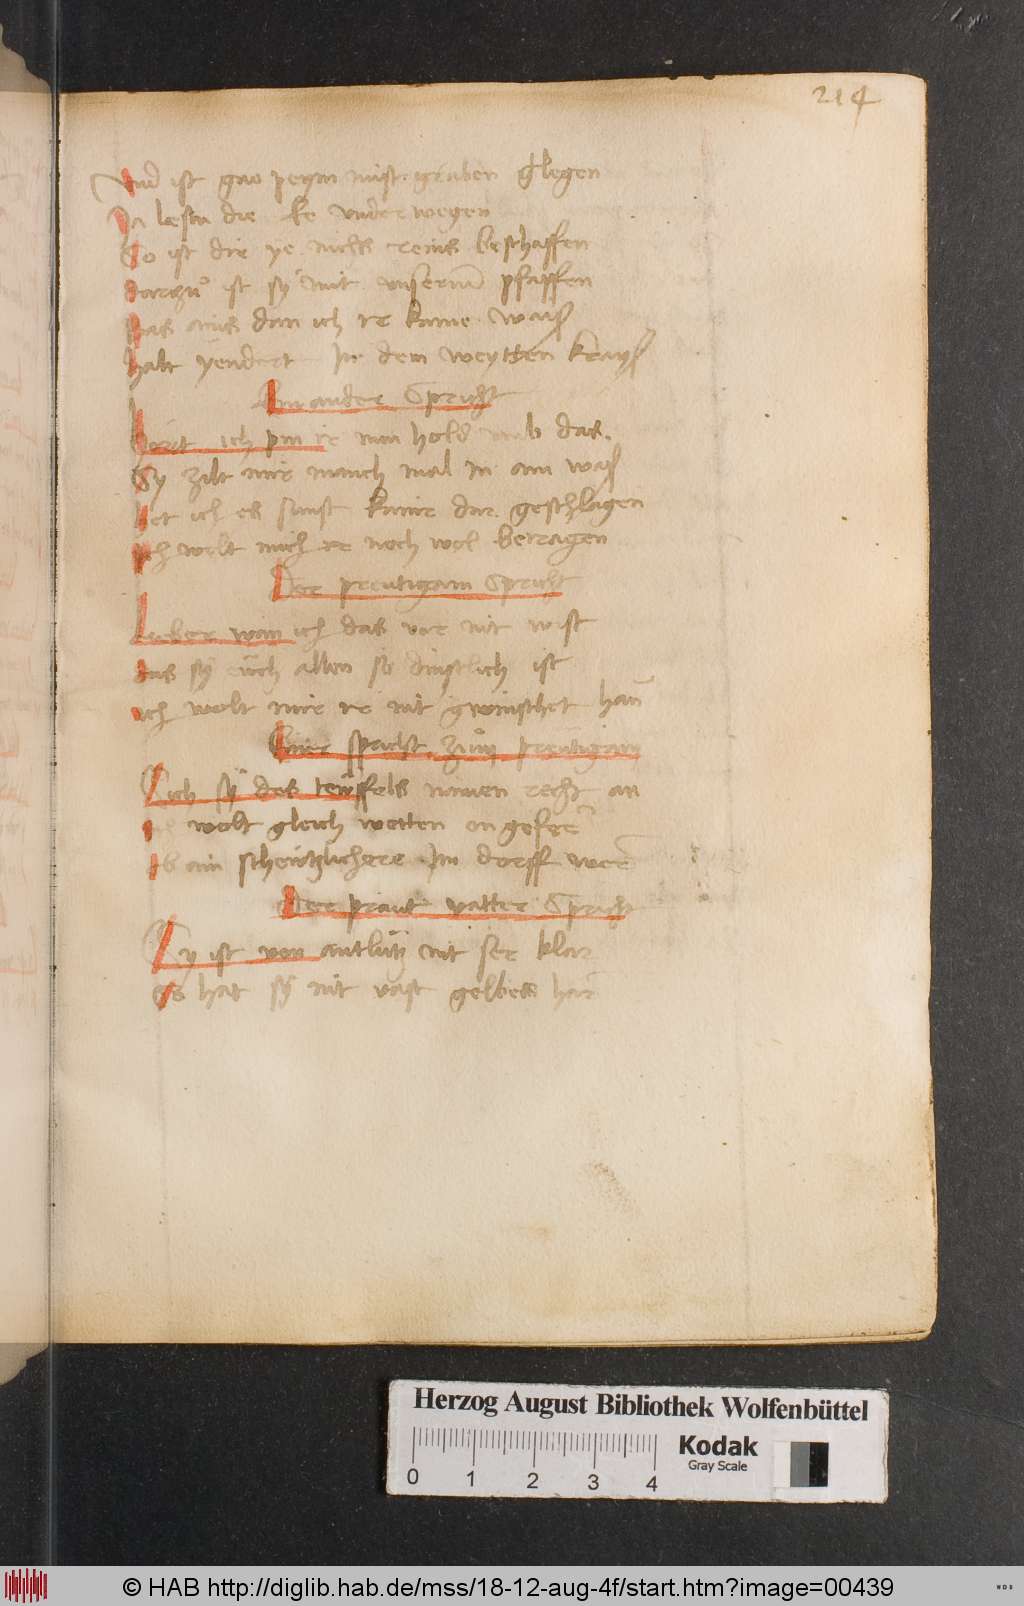 214
Und ist gar peym mist graben glegen
Ja lestu die Ee underwegen
So ist die ye nichs reins beschaffen
darzu ist sy mit unserm pfaffen
das ains dan ich ir kaine wais
halt yendert In dem weytten krays
Ain ander Spricht
Hort ich pin ir nun hold umb das
Sy zilt mir manch mal In am was
het ich es sunst kainr dar geschlagen
Ich wolt mich ir noch wol betragen
Der preutigam Spricht
Lieber wan ich das vor nit wist
das sy euch allen so dinstlich ist
ich wolt mir ir nit gwinschet han
Ainer spricht zum preutigam
Sich sy des teuffels namen recht an
ich wolt gleich wetten on gefer
ob ain scheutzlichere Im dorff wer
Der praut vatter Spricht
Sy ist von antlutz nit ser klar
Es hat sy nit vast gelbess har
Herzog August Bibliothek Wolfenbüttel
0 1 2 3 4
Kodak
Gray Scale
© HAB http://diglib.hab.de/mss/18-12-aug-4f/start.htm?image=00439